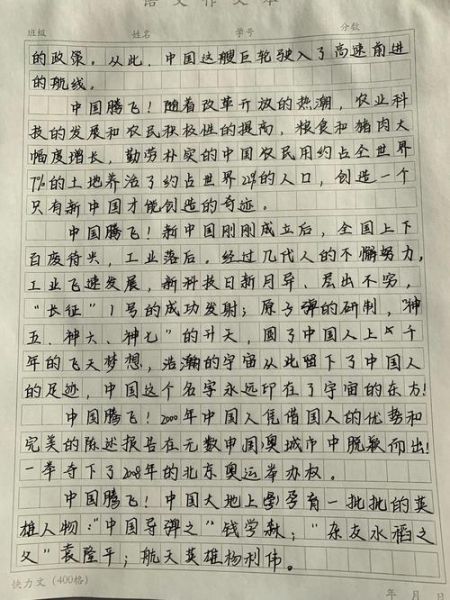 语文作文本
班级 姓名 学号 分数
的政策。从此，中国这艘巨轮驶入了高速前进
的航线。
中国腾飞！随着改革开放的热潮，农业科
技的发展和农民积极性的提高，粮食和猪肉大
幅度增长，勤劳朴实的中国农民用约占全世界
7%的土地养活了约占世界22%的人口，创造一个
只有新中国才能创造的奇迹。
中国腾飞！新中国刚刚成立后，全国上下
百废待兴，工业落后。经过几代人的不懈努力，
工业飞速发展，新科技日新月异、层出不穷，
“长征”1号的成功发射；原子弹的研制，“神
五、神六、神七”的升天，圆了中国人上千
年的飞天梦想，浩瀚的宇宙从此留下了中国人
的足迹，中国这个名字永远印在了宇宙的东方！
中国腾飞！2000年中国人凭借国人的优势和
完美的陈述报告在无数申奥城市中脱颖而出！
一举夺下了2008年的北京奥运举办权。
中国腾飞！中国大地上孕育一批批的英
雄人物：“中国导弹之”钱学森；“杂交水稻之
父”袁隆平；航天英雄杨利伟。
快力文（400格）
年 月 日